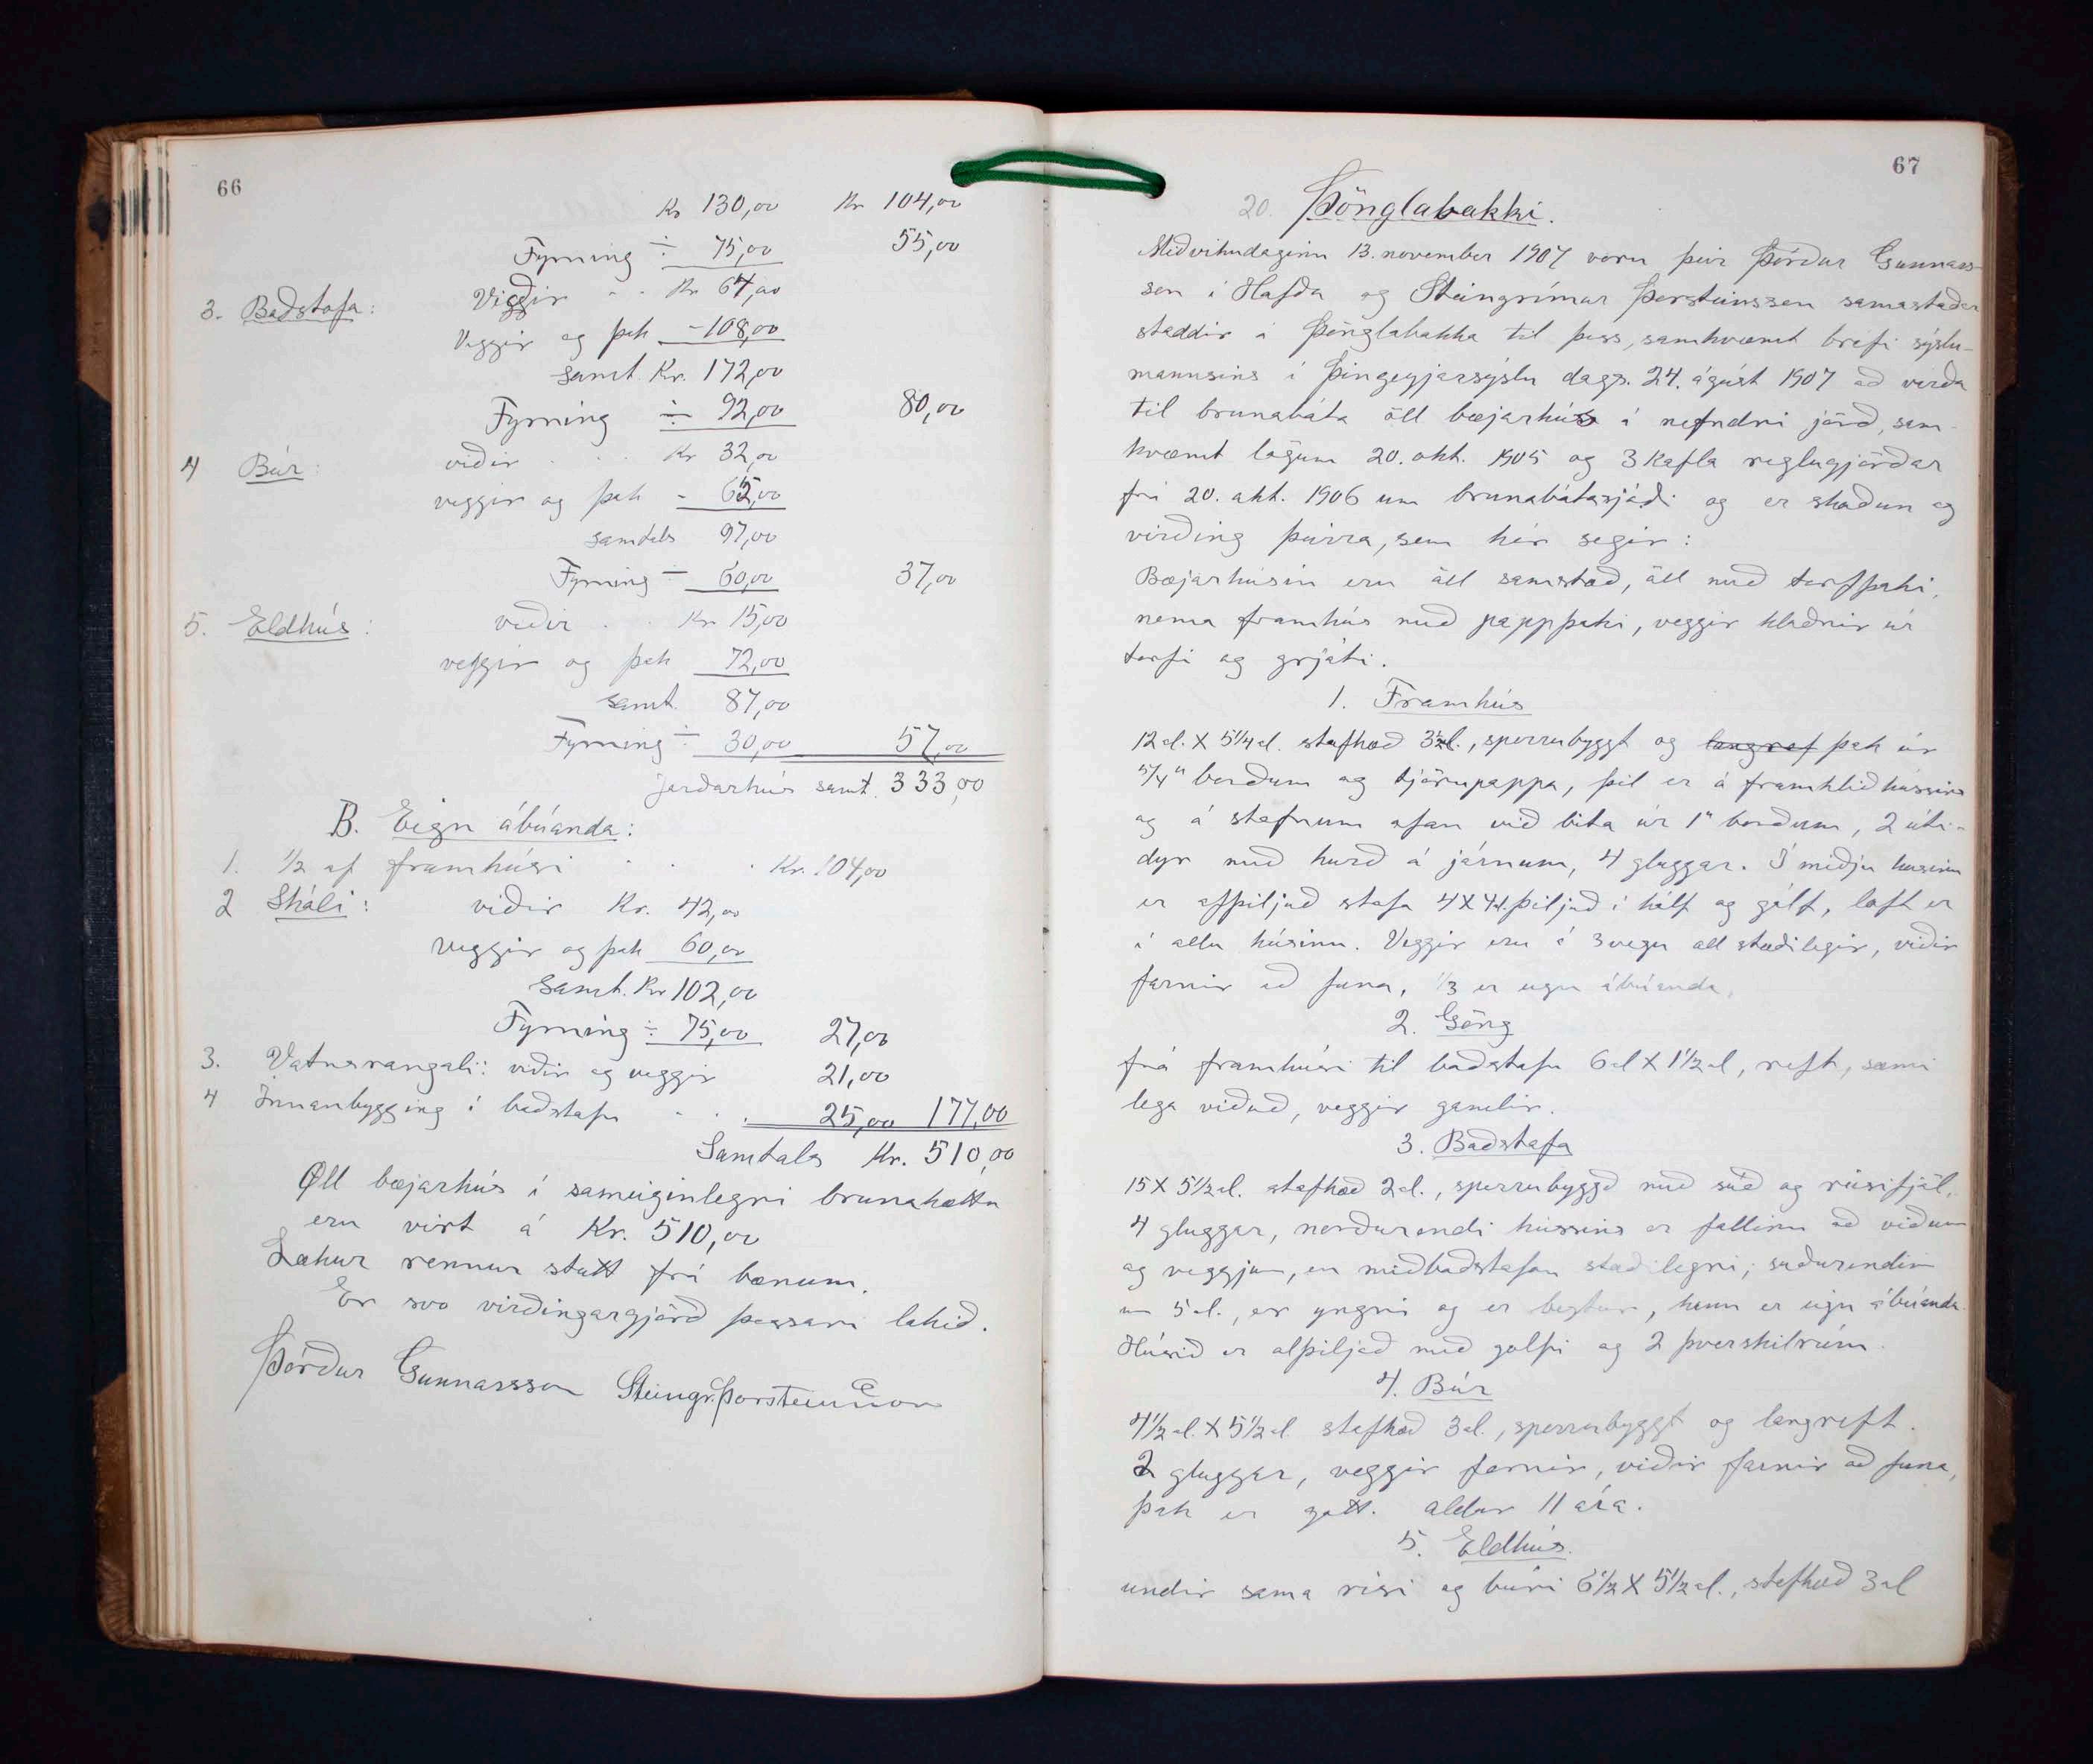 66
Kr 130,00 Kr 104,00
Fyrning ÷ 75,00 55,00
3. Baðstofa: Viðir . . Kr 64,00
Veggir og þak - 108,00
Samt. Kr. 172,00
Fyrning ÷ 92,00 80,00
4 Búr: viðir . . . Kr 32,00
veggir og þak - 65,00
samtals 97,00
Fyrning ÷ 60,00 37,00
5. Eldhús: viðir . . Kr 15,00
veggir og þak 72,00
samt. 87,00
Fyrning ÷ 30,00 57,00
Jarðarhús samt. 333,00
B. Eign ábúanda:
1. 1/2 af framhúsi . . . Kr. 104,00
2 Skáli: viðir Kr. 42,00
veggir og þak 60,00
Samt. Kr 102,00
Fyrning ÷ 75,00 27,00
3. Vatnsrangali: viðir og veggir 21,00
4 Innanbygging í baðstofu - . . 25,00 177,00
Samtals Kr. 510,00
Öll bæjarhús í sameiginlegri brunahættu
eru virt á Kr. 510,00
Lækur rennur stutt frá bænum.
Er svo virðingargjörð þessari lokið.
Þórður Gunnarsson Steingr. Þorsteinsson
67
20. Þönglabakki.
Miðvikudaginn 13. november 1907 voru þeir Þórður Gunnars-
son í Höfða og Steingrímur Þorsteinsson samastaðar
staddir á Þönglabakka til þess, samkvæmt brefi sýslu-
mannsins í Þingeyjarsýslu dags. 24. ágúst 1907 að virða
til brunabóta öll bæjarhús á nefndri jörð, sam-
kvæmt lögum 20. okt. 1905 og 3 kafla reglugjörðar
frá 20. okt. 1906 um brunabótasjóði og er skoðun og
virðing þeirra, sem hér segir:
Bæjarhúsin eru öll samstæð, öll með torfþaki,
nema framhús með pappþaki, veggir hlaðnir úr
torfi og grjóti.
1. Framhús
12 al. X 5 1/4 al. stafhæð 3 1/2 al., sperrubyggt og langref þak úr
5/4" borðum og tjörupappa, þil er á framhlið hússins
og á stefnum ofan við bita úr 1" borðum, 2 úti-
dyr með hurð á járnum, 4 gluggar. Í miðju húsinu
er afþiljuð stofa 4 X 4 al. þiljuð í hólf og gólf, loft er
í öllu húsinu. Veggir eru á 3 vegu all stæðilegir, viðir
farnir að fúna, 1/3 er eign ábúanda.
2. Göng
frá framhúsi til baðstofu 6 al X 1 1/2 al, reft, sæmi
lega viðuð, veggir gamlir.
3. Baðstofa
15 X 5 1/2 al. stafhæð 2 al., sperrubyggð með súð og reisifjöl,
4 gluggar, norðurendi hússins er fallinn að viðum
og veggjum, en miðbaðstofan stæðilegri, suðurendinn
um 5 al., er yngri og er beztur, hann er eign ábúanda.
Húsið er alþiljað með golfi og 2 þverskilrúm.
4. Búr
4 1/2 al. X 5 1/2 al. stafhæð 3 al., sperrubyggt og langreft.
2 gluggar, veggir fornir, viðir farnir að fúna,
þak er gott. aldur 11 ára.
5. Eldhús.
undir sama risi og búri 6 1/2 X 5 1/2 al., stafhæð 3 al